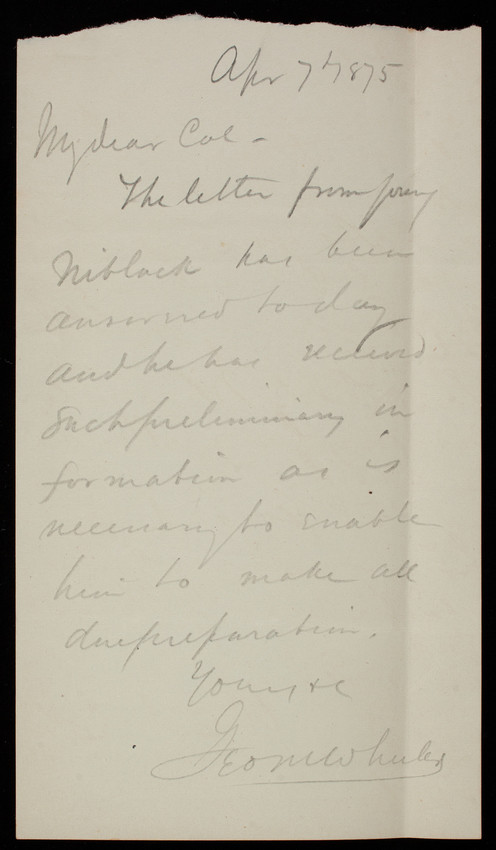 Apr 7th 1875
My dear Col -
The letter from young
Niblack has been
answered today
and he has received
such preliminary in
formation as is
necessary to enable
him to make all
due preparation.
Yours &c
Geo M Wheeler